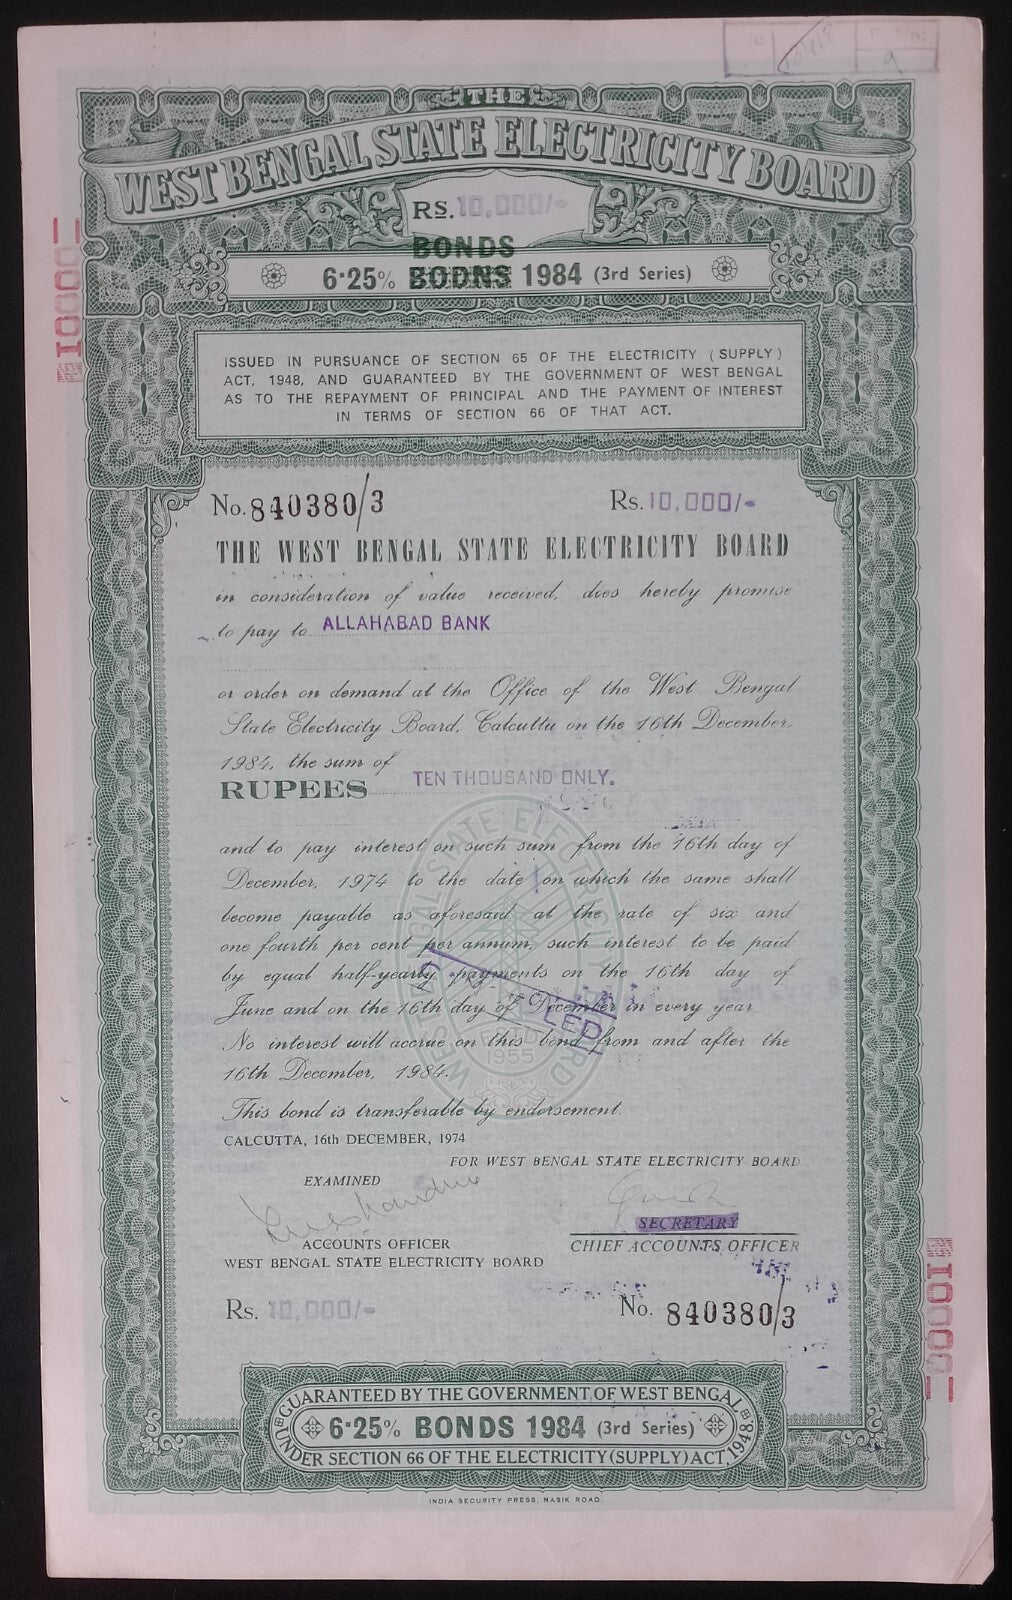 THE
WEST BENGAL STATE ELECTRICITY BOARD
RS. 10,000/-
BONDS
6·25% BODNS 1984 (3rd Series)
ISSUED IN PURSUANCE OF SECTION 65 OF THE ELECTRICITY (SUPPLY)
ACT, 1948, AND GUARANTEED BY THE GOVERNMENT OF WEST BENGAL
AS TO THE REPAYMENT OF PRINCIPAL AND THE PAYMENT OF INTEREST
IN TERMS OF SECTION 66 OF THAT ACT.
10000
No. 840380/3 Rs. 10,000/-
THE WEST BENGAL STATE ELECTRICITY BOARD
in consideration of value received, does hereby promise
to pay to ALLAHABAD BANK
or order on demand at the Office of the West Bengal
State Electricity Board, Calcutta on the 16th December,
1984, the sum of
RUPEES TEN THOUSAND ONLY.
and to pay interest on such sum from the 16th day of
December, 1974 to the date on which the same shall
become payable as aforesaid at the rate of six and
one fourth per cent per annum, such interest to be paid
by equal half-yearly payments on the 16th day of
June and on the 16th day of December in every year
No interest will accrue on this bond from and after the
16th December, 1984.
This bond is transferable by endorsement.
WEST BENGAL STATE ELECTRICITY BOARD
ESTD
1955
CALCUTTA, 16th DECEMBER, 1974
FOR WEST BENGAL STATE ELECTRICITY BOARD
EXAMINED
SECRETARY
ACCOUNTS OFFICER CHIEF ACCOUNTS OFFICER
WEST BENGAL STATE ELECTRICITY BOARD
Rs. 10,000/- No. 840380/3
10000
GUARANTEED BY THE GOVERNMENT OF WEST BENGAL
6·25% BONDS 1984 (3rd Series)
UNDER SECTION 66 OF THE ELECTRICITY (SUPPLY) ACT, 1948
INDIA SECURITY PRESS, NASIK ROAD.